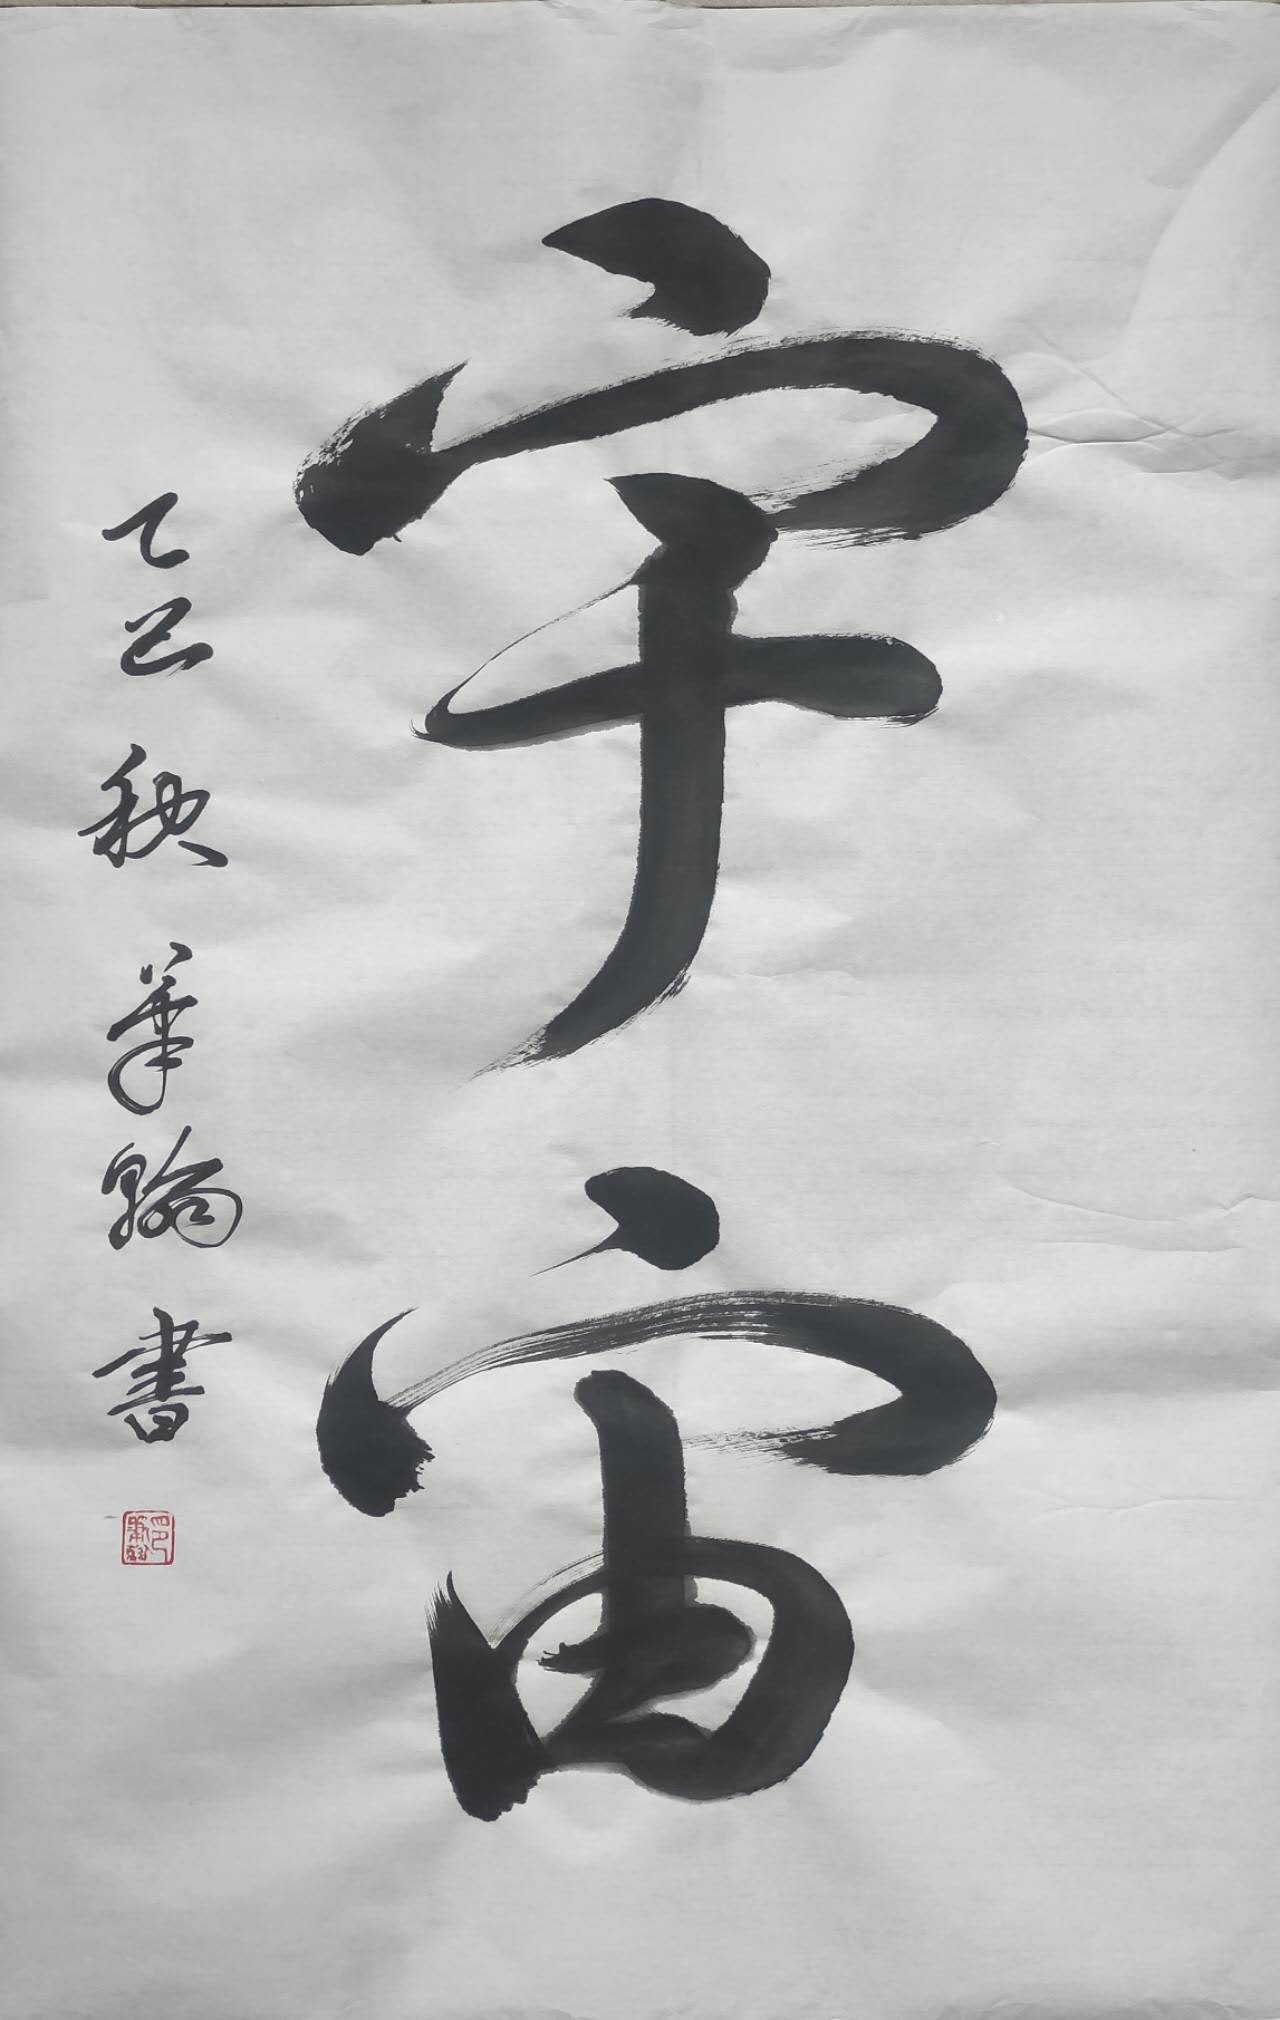 宇宙
乙巳秋華翰書